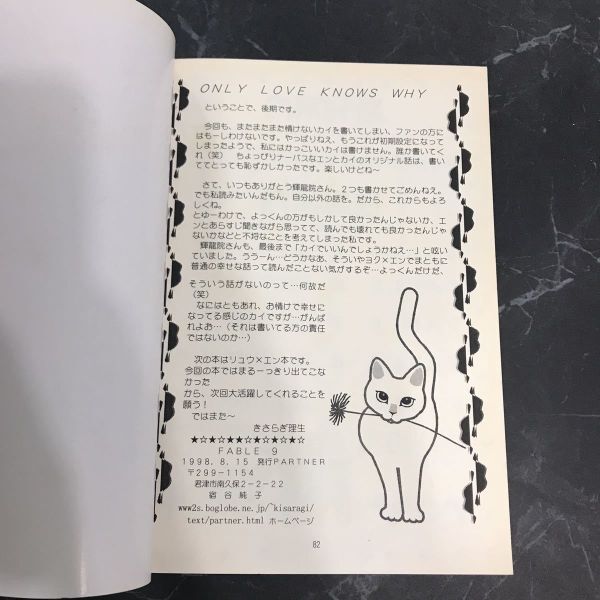 ONLY LOVE KNOWS WHY
ということで、後期です。
今回も、またまたまた情けないカイを書いてしまい、ファンの方に
はもーしわけないです。やっぱりねえ、もうこれが初期設定になっ
てしまったようで、私にはかっこいいカイは書けません。誰か書いてく
れ（笑） ちょっぴりナーバスなエンとカイのオリジナル話は、書い
ててとっても恥ずかしかったです。楽しいけどね～
さて、いつもありがとう輝龍院さん。２つも書かせてごめんねえ。
でも私読みたいんだもん。自分以外の話を。だから、これからもよろ
しくね。
とゆーわけで、よっくんの方がもしかして良かったんじゃないか、エ
ンとあらすじ聞きながら思ってて、読んでも壊れても良かったんじゃ
ないかなどと不埒なことを考えてしまった私です。
輝龍院さんも、最後まで「カイでいいんでしょうかねえ…」と呟い
ていました。ううーん…どうかなあ、そういやヨク×エンでまともに
普通の幸せな話って読んだことない気がするぞ…よっくんだけだ、
そういう話がないのって…何故だ
（笑）
なにはともあれ、お情けで幸せに
なってる感じのカイですが…がんば
れよお…（それは書いてる方の責任
ではないのか…）
次の本はリュウ×エン本です。
今回の本ではまるーっきり出てこな
かった
から、次回大活躍してくれることを
願う！
ではまた～
きさらぎ理生
★☆★☆★★☆★☆★☆★☆
FABLE 9
1998.8.15 発行PARTNER
〒299-1154
君津市南久保2-2-22
宿谷純子
www2s.boglobe.ne.jp/~kisaragi/
text/partner.html ホームページ
82